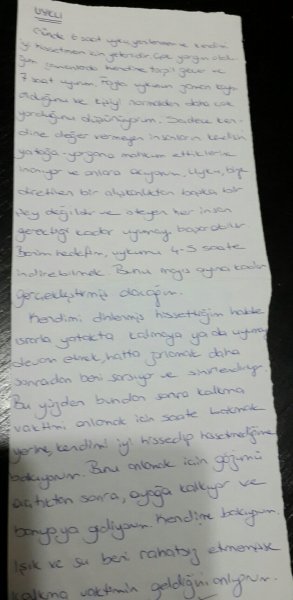 UYKU
Günde 6 saat uyku yenilenmem ve kendimi
iyi hissetmem için yeterlidir. Çok yorgun oldu-
ğum zamanlarda kendime torpil geçer ve
7 saat uyurum. Fazla uykunun zaman kaybı
olduğunu ve kişiyi normalden daha çok
yorduğunu düşünüyorum. Sadece ken-
dine değer vermeyen insanların kendisini
yatağa-yorgana mahkum ettiklerine
inanıyor ve onlara acıyorum. Uyku, bize
öğretilen bir alışkanlıktan başka bir
şey değildir ve isteyen her insan
gerektiği kadar uyumayı başarabilir.
Benim hedefim, uykumu 4-5 saate
indirebilmek. Bunu mayıs ayına kadar
gerçekleştirmiş olacağım.
Kendimi dinlenmiş hissettiğim halde
ısrarla yatakta kalmaya ya da uyumaya
devam etmek, hatta zorlamak daha
sonradan beni sarsıyor ve sinirlendiriyor.
Bu yüzden bundan sonra kalkma
vaktimi anlamak için saate bakmak
yerine, kendimi iyi hissedip hissetmediğime
bakıyorum. Bunu anlamak için gözümü
açtıktan sonra, ayağa kalkıyor ve
banyoya gidiyorum. Kendime bakıyorum.
Işık ve su beni rahatsız etmemişse
kalkma vaktimin geldiğini anlıyorum.